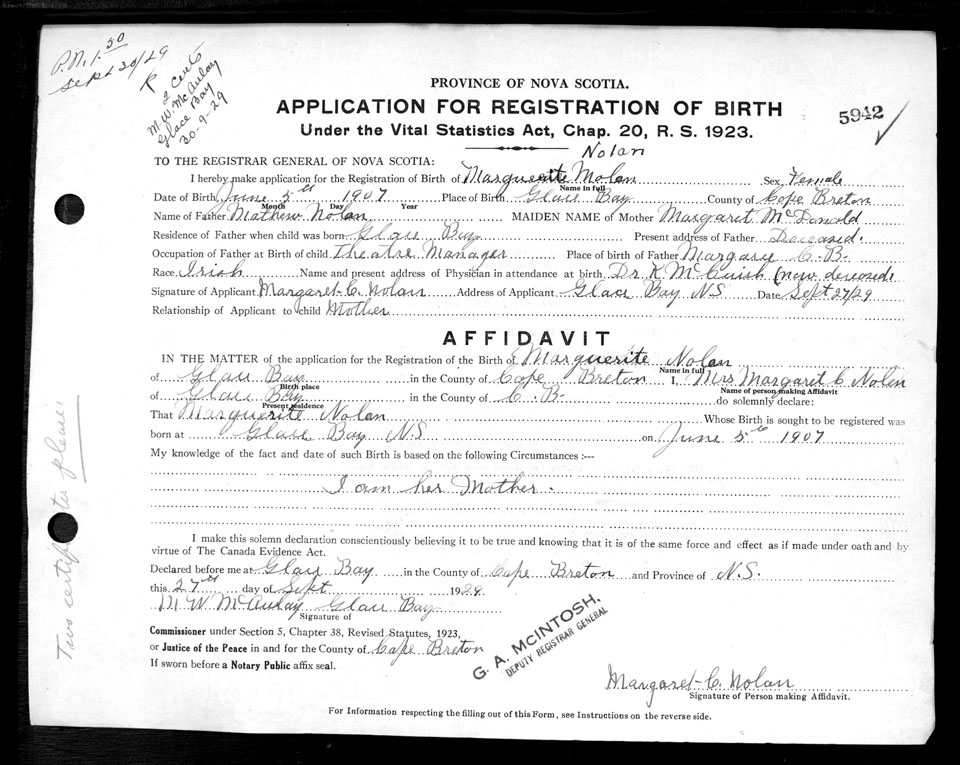 P.N. 1.50
Sept 30/29
R
2 Certs
M.W. McAulay
Glace Bay
30-9-29
PROVINCE OF NOVA SCOTIA.
APPLICATION FOR REGISTRATION OF BIRTH
5942
Under the Vital Statistics Act, Chap. 20, R. S. 1923.
Nolan
TO THE REGISTRAR GENERAL OF NOVA SCOTIA:
I hereby make application for the Registration of Birth of Marguerite Molan Sex Female
Name in full
Date of Birth June 5th 1907 Place of Birth Glace Bay County of Cape Breton
Month Day Year
Name of Father Mathew Nolan MAIDEN NAME of Mother Margaret McDonald
Residence of Father when child was born Glace Bay Present address of Father Deceased.
Occupation of Father at Birth of child Theatre Manager Place of birth of Father Margaree C.B.
Race Irish Name and present address of Physician in attendance at birth Dr. K. McCuish (now deceased)
Signature of Applicant Margaret C. Nolan Address of Applicant Glace Bay NS Date Sept 27/29
Relationship of Applicant to child Mother
AFFIDAVIT
IN THE MATTER of the application for the Registration of the Birth of Marguerite Nolan
Name in full
of Glace Bay in the County of Cape Breton I, Mrs Margaret C Nolan
Birth place Name of person making Affidavit
of Glace Bay in the County of C. B. do solemnly declare:
Present residence
That Marguerite Nolan Whose Birth is sought to be registered was
born at Glace Bay NS on June 5th 1907
My knowledge of the fact and date of such Birth is based on the following Circumstances :--
I am her Mother.
I make this solemn declaration conscientiously believing it to be true and knowing that it is of the same force and effect as if made under oath and by
virtue of The Canada Evidence Act.
Declared before me at Glace Bay in the County of Cape Breton and Province of N.S.
this 27th day of Sept 1929.
M W McAulay Glace Bay
Signature of
Commissioner under Section 5, Chapter 38, Revised Statutes, 1923,
or Justice of the Peace in and for the County of Cape Breton
If sworn before a Notary Public affix seal.
G. A. McINTOSH.
DEPUTY REGISTRAR GENERAL
Margaret C. Nolan
Signature of Person making Affidavit.
For Information respecting the filling out of this Form, see Instructions on the reverse side.
Two certificates please!